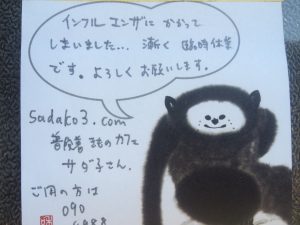 インフルエンザに かかって
しまいました... 漸く 臨時休業
です。よろしく お願いします。
sadako3.com
カフェ
サダ子さん。
ご用の方は
090